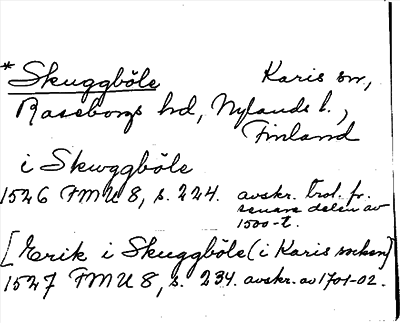 *Skuggböle Karis sn,
Raseborgs hd, Nylands l.,
Finland
i Skwggböle
1526 FMU 8, s. 224. avskr. trol. fr.
senare delen av
1500-t.
[Erik i Skuggböle (i Karis socken)]
1527 FMU 8, s. 234. avskr. av 1701-02.